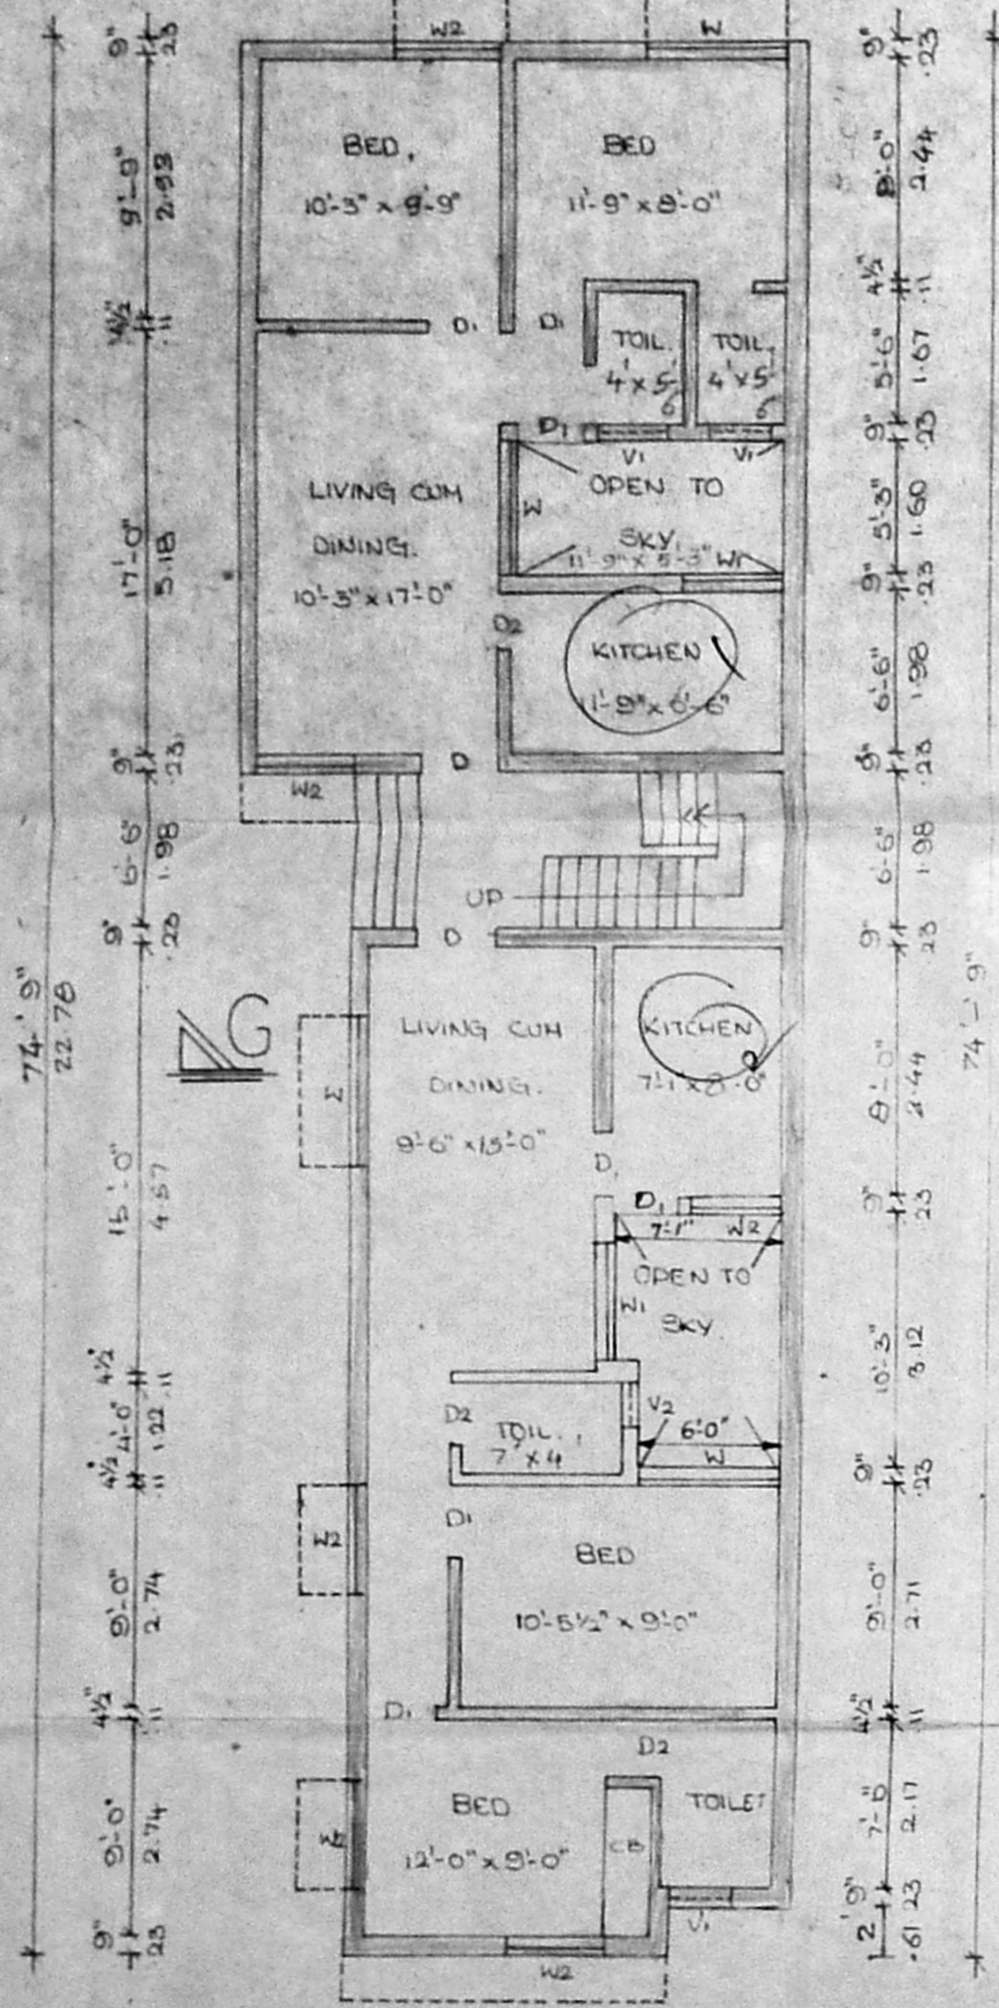 W2
W
BED.
10'-3" x 9'-9"
BED
11'-9" x 8'-0"
D1
D1
TOIL.
4' x 5'-6
TOIL.
4' x 5'-6
D1
V1
V1
LIVING CUM
DINING.
10'-3" x 17'-0"
W
OPEN TO
SKY.
11'-9" x 5'-3"
W1
D2
KITCHEN
11'-9" x 6'-6"
D
W2
UP
D
LIVING CUM
DINING.
9'-6" x 15'-0"
KITCHEN
7'-1" x 8'-0"
W
D1
D1
7'-1"
W2
OPEN TO
SKY
W1
D2
TOIL.
7' x 4'
V2
6'-0"
W
D1
W2
BED
10'-5½" x 9'-0"
D1
D2
BED
12'-0" x 9'-0"
CB
TOILET
W2
V1
W2
G
74'-9"
22.78
9"
.23
9'-9"
2.93
4½"
.11
17'-0"
5.18
9"
.23
6'-6"
1.98
9"
.23
15'-0"
4.57
4½"
.11
4'-0"
1.22
4½"
.11
9'-0"
2.74
4½"
.11
9'-0"
2.74
9"
23
9"
.23
8'-0"
2.44
4½"
.11
5'-6"
1.67
9"
.23
5'-3"
1.60
9"
.23
6'-6"
1.98
9"
.23
6'-6"
1.98
9"
23
8'-0"
2.44
9"
23
10'-3"
3.12
9"
.23
9'-0"
2.71
4½"
.11
7'-0"
2.17
9"
23
2'
.61
74'-9"